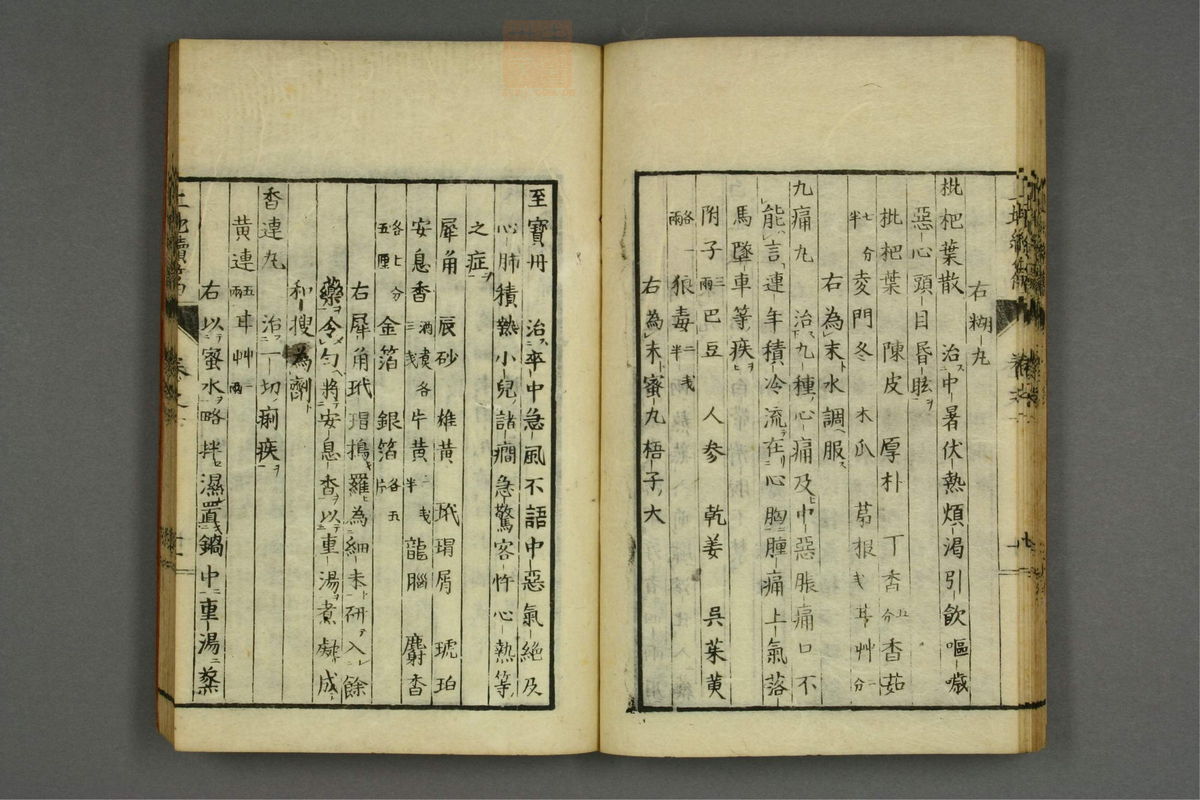 右糊丸
枇杷葉散 治中暑伏熱煩渇引飲嘔噦
惡心頭目昏眩
枇杷葉 陳皮 厚朴 丁香 五分 香茹
七分半 麥門冬 木瓜 茅根 甘艸 一分
右為末水調服
九痛丸 治九種心痛及中惡脹痛口不
能言連年積冷流在心胸腫痛上氣落
馬墜車等疾
附子 三兩 巴豆 人参 乾姜 呉茱萸
各一兩 狼毒
右為末蜜丸梧子大
至寶丹 治卒中急風不語中惡氣絶及
心肺積熱小兒諸癇急驚客忤心熱等
之症
犀角 辰砂 雄黄 玳瑁屑 琥珀
安息香 牛黄 龍腦 麝香
各七分五厘 金箔 銀箔 各五片
右犀角玳瑁搗羅為細末研入餘
藥令勻將安息香以重湯煮凝成
和搜為劑
香連丸 治一切痢疾
黄連 五兩 甘艸 一兩
右以蜜水略拌濕置鍋中重湯蒸